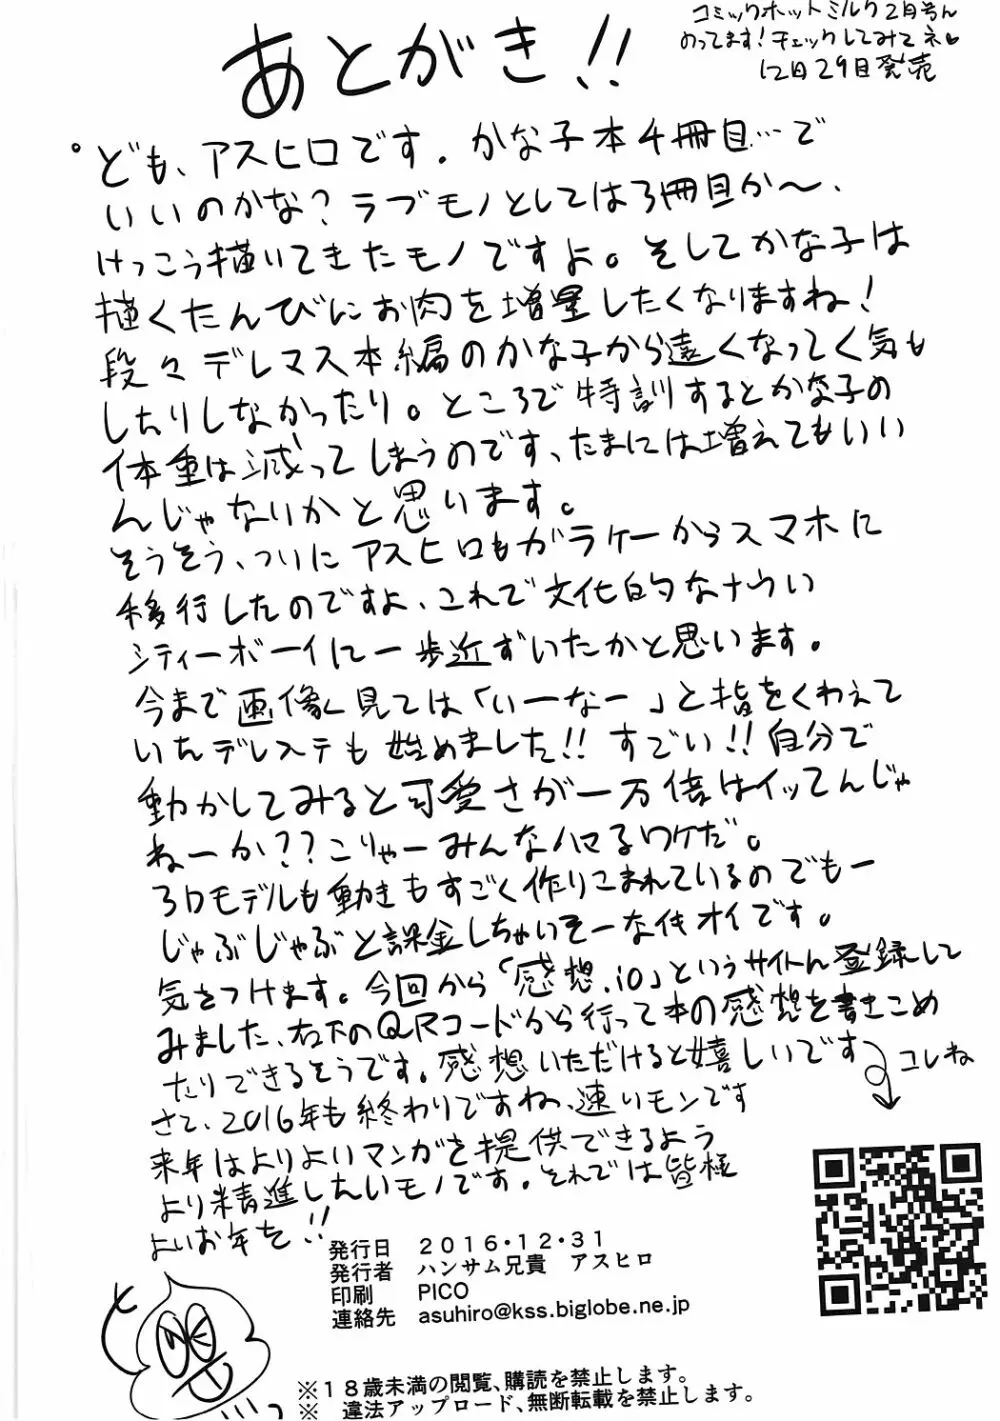 あとがき!!
コミックホットミルク2月号ん
のってます!チェックしてみてネ♥
12月29日発売
ども、アスヒロです。かな子本4冊目…で
いいのかな?ラブモノとしては3冊目か〜、
けっこう描いてきたモノですよ。そしてかな子は
描くたんびにお肉を増量したくなりますね!
段々デレマス本編のかな子から遠くなってく気も
したりしなかったり。ところで特訓するとかな子の
体重は減ってしまうのです、たまには増えてもいい
んじゃないかと思います。
そうそう、ついにアスヒロもガラケーからスマホに
移行したのですよ、これで文化的なナウい
シティーボーイに一歩近ずいたかと思います。
今まで画像く見ては「いーなー」と指をくわえて
いたデレステも始めました!!すごい!!自分で
動かしてみると可愛さが一万倍はイッてんじゃ
ねーか??こりゃーみんなハマるワケだ。
3Dモデルも動きもすごく作りこまれているのでもー
じゃぶじゃぶと課金しちゃいそーなイキオイです。
気をつけます。今回から「感想.io」というサイトん登録して
みました、右下のQRコードから行って本の感想を書きこめ
たりできるそうです。感想いただけると嬉しいです
コレね
さて、2016年も終わりですね、速いモンです
来年はよりよいマンガを提供できるよう
より精進したいモノです。それでは皆様
よいお年を!!
発行日 2016・12・31
発行者 ハンサム兄貴 アスヒロ
印刷 PICO
連絡先 asuhiro@kss.biglobe.ne.jp
※18歳未満の閲覧、購読を禁止します。
※ 違法アップロード、無断転載を禁止します。